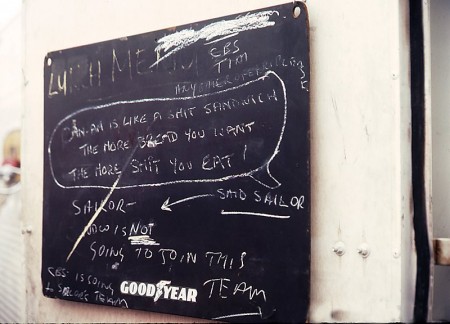 LUNCH MENU
CBS
TIM
CAN-AM IS LIKE A SHIT SANDWICH
THE MORE BREAD YOU WANT
THE MORE SHIT YOU EAT!
SAILOR-
SAID SAILOR
WHO IS NOT
GOING TO JOIN THIS
TEAM
CBS IS GOING
TEAM
GOODYEAR